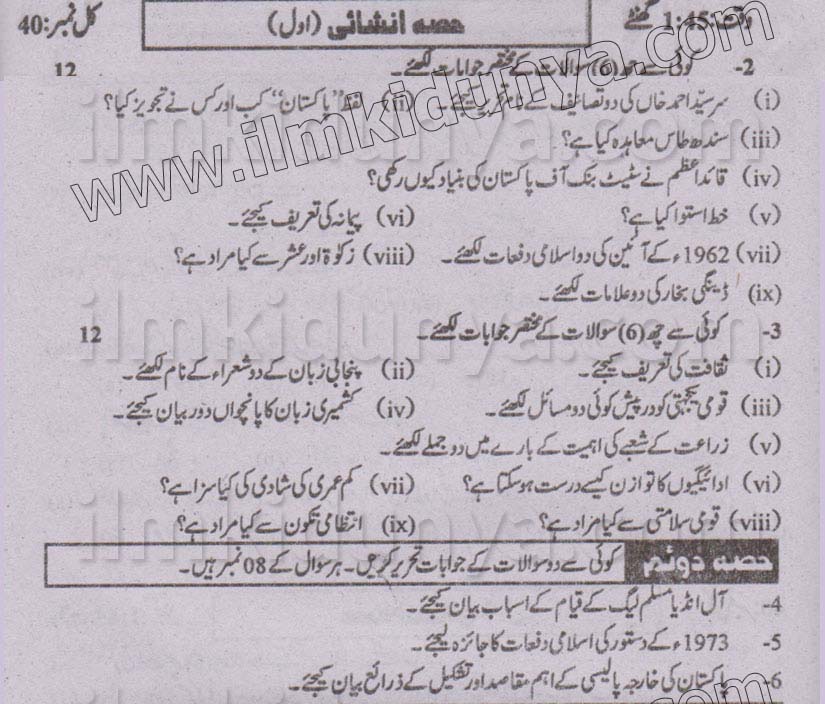 وقت: 1:45 گھنٹے حصہ انشائی (اول) کل نمبر: 40
2- کوئی سے چھ (6) سوالات کے مختصر جوابات لکھئے۔ 12
(i) سرسیّد احمد خاں کی دو تصانیف کے نام تحریر کیجئے۔ (ii) لفظ "پاکستان" کب اور کس نے تجویز کیا؟
(iii) سندھ طاس معاہدہ کیا ہے؟
(iv) قائداعظم نے سٹیٹ بنک آف پاکستان کی بنیاد کیوں رکھی؟
(v) خط استوا کیا ہے؟ (vi) پیمانہ کی تعریف کیجئے۔
(vii) 1962ء کے آئین کی دو اسلامی دفعات لکھئے۔ (viii) زکوٰۃ اور عشر سے کیا مراد ہے؟
(ix) ڈینگی بخار کی دو علامات لکھئے۔
3- کوئی سے چھ (6) سوالات کے مختصر جوابات لکھئے۔ 12
(i) ثقافت کی تعریف کیجئے۔ (ii) پنجابی زبان کے دو شعراء کے نام لکھئے۔
(iii) قومی یکجہتی کو درپیش کوئی دو مسائل لکھئے۔ (iv) کشمیری زبان کا پانچواں دور بیان کیجئے۔
(v) زراعت کے شعبے کی اہمیت کے بارے میں دو جملے لکھئے۔
(vi) ادائیگیوں کا توازن کیسے درست ہو سکتا ہے؟ (vii) کم عمری کی شادی کی کیا سزا ہے؟
(viii) قومی سلامتی سے کیا مراد ہے؟ (ix) انتظامی تکون سے کیا مراد ہے؟
حصہ دوئم کوئی سے دو سوالات کے جوابات تحریر کریں۔ ہر سوال کے 08 نمبر ہیں۔
4- آل انڈیا مسلم لیگ کے قیام کے اسباب بیان کیجئے۔
5- 1973ء کے دستور کی اسلامی دفعات کا جائزہ لیجئے۔
6- پاکستان کی خارجہ پالیسی کے اہم مقاصد اور تشکیل کے ذرائع بیان کیجئے۔
www.ilmkidunya.com
ilmkidunya.com
ilmkidunya.com
ilmkidunya.com